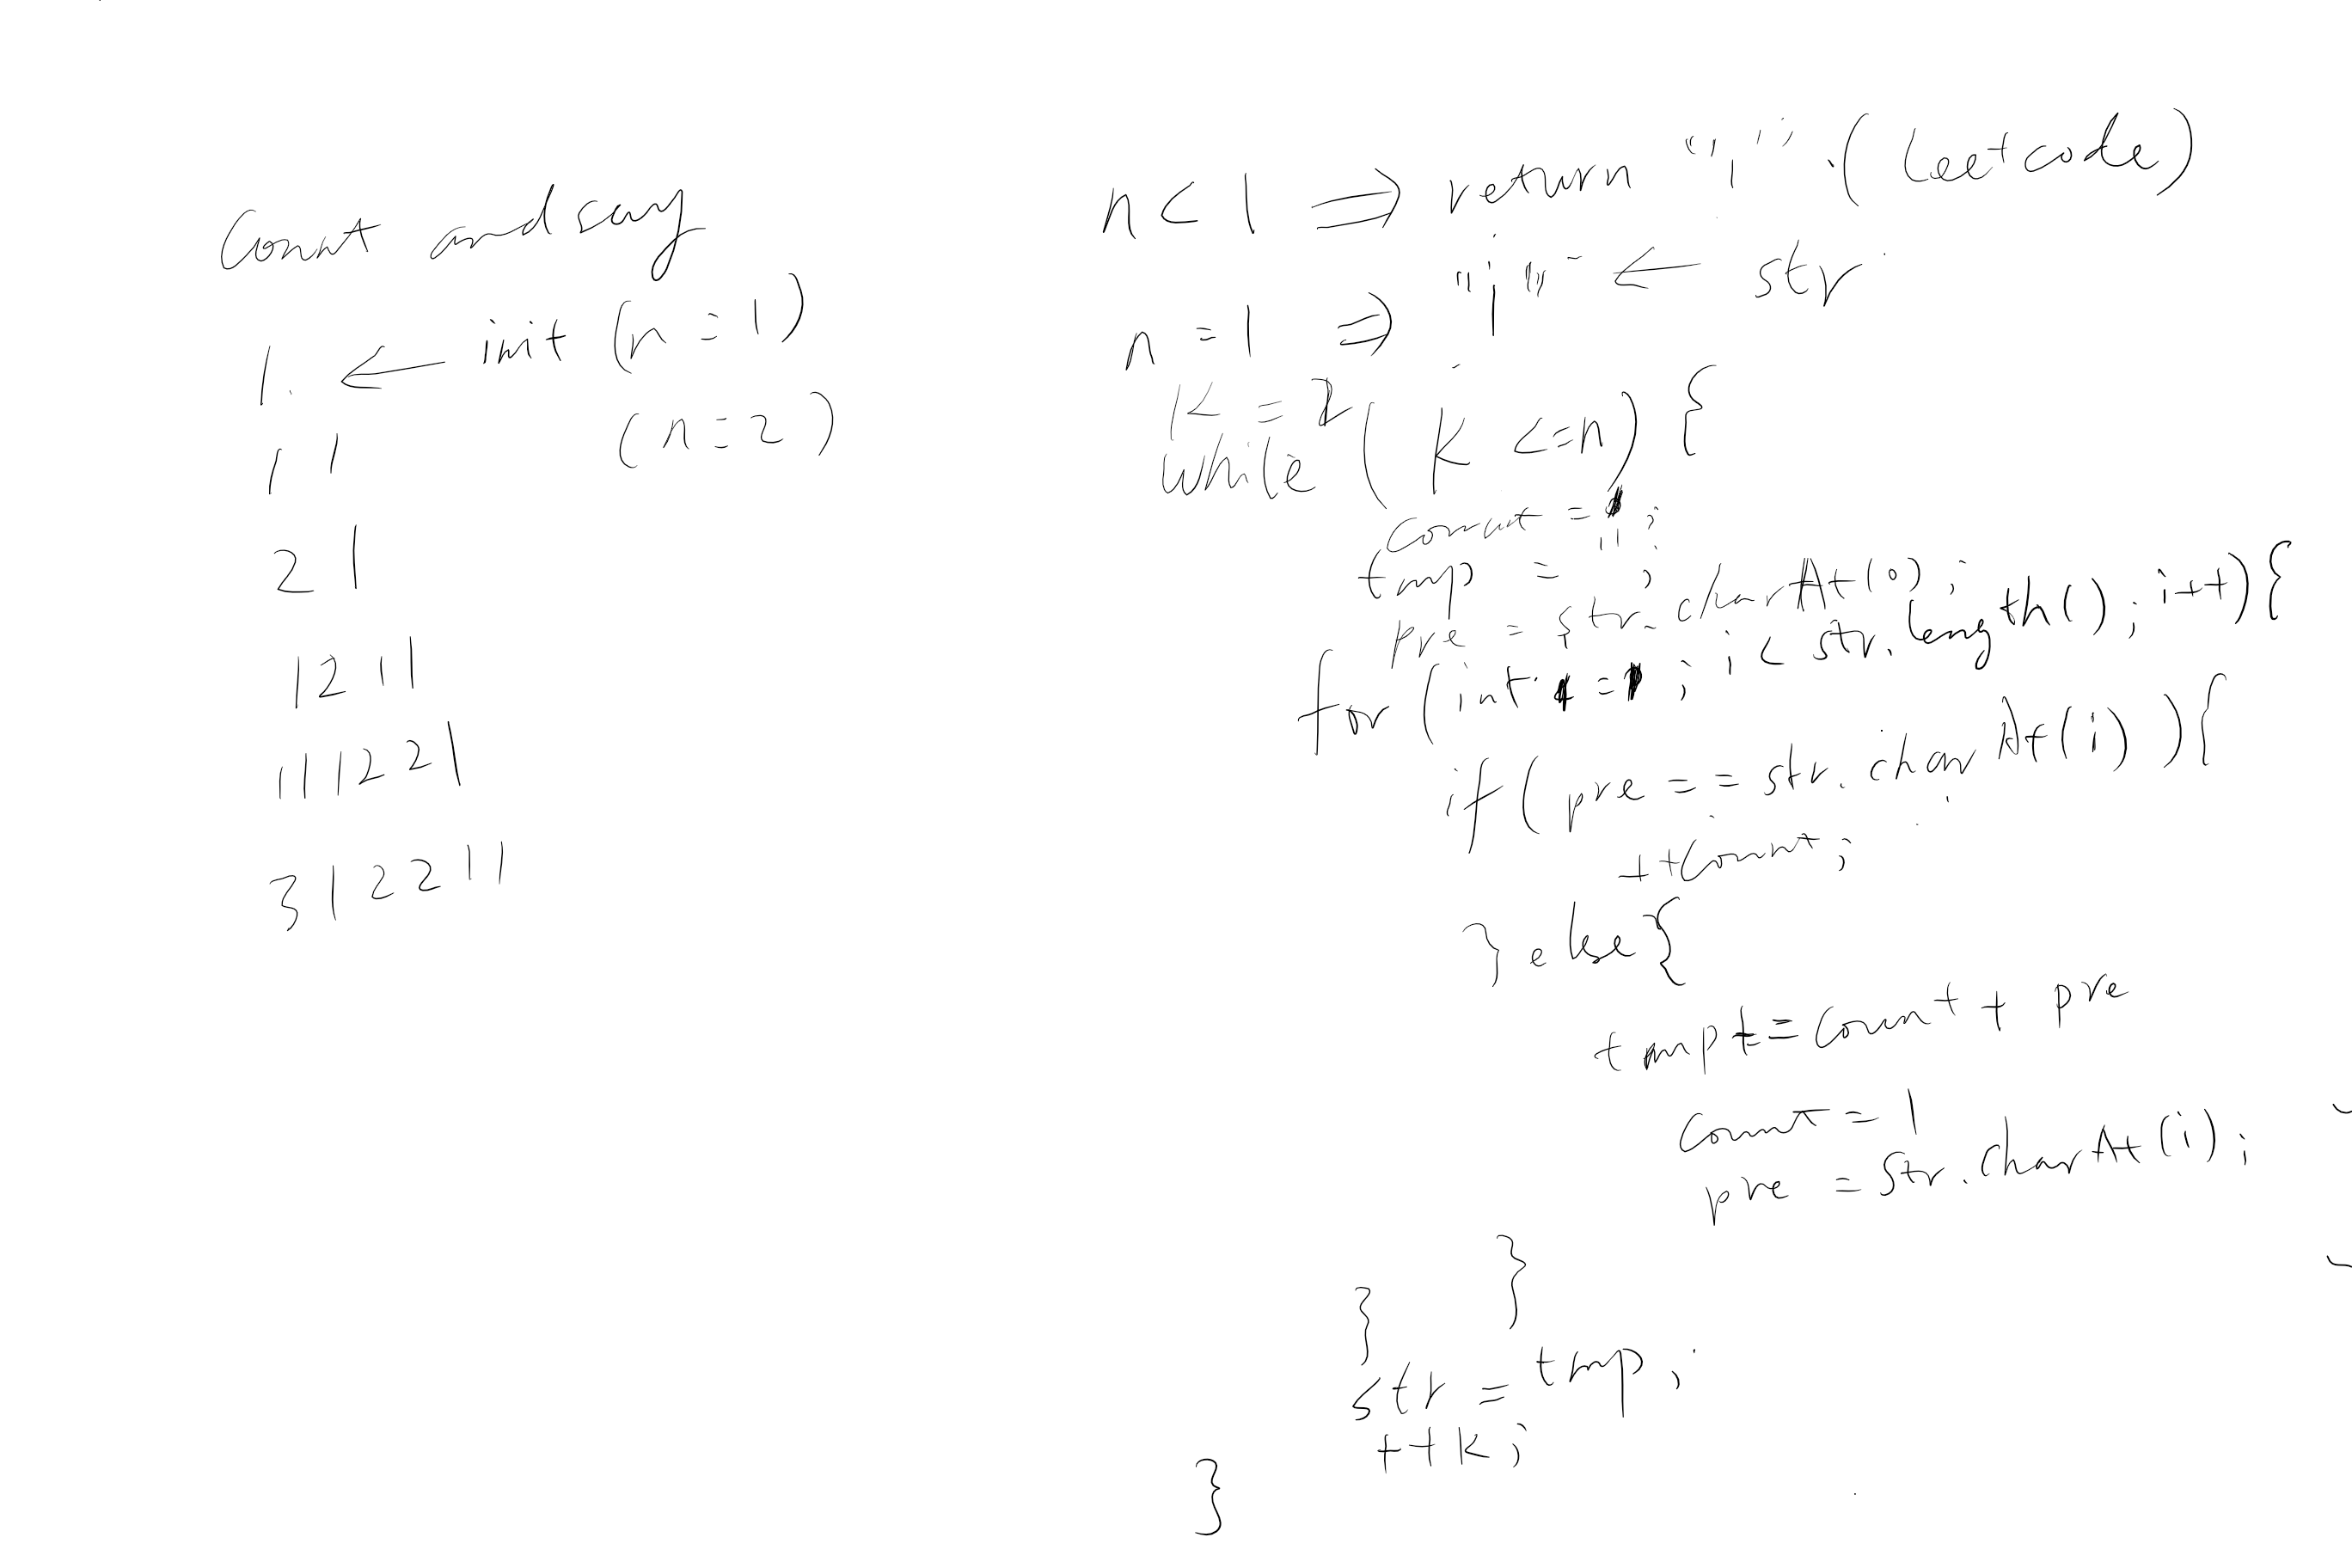 Count and say
1. ← init (n = 1)
1 1 (n = 2)
2 1
1 2 1 1
1 1 1 2 2 1
3 1 2 2 1 1
n < 1 ⇒ return "1" . (leetcode)
n = 1 ⇒ "1" ← str
K = 2
while ( K <= n) {
count = ;
tmp = " ;
pre = str.charAt(0);
for (int = ; i < str.length(); i++) {
if (pre == str.charAt(i)) {
++Count;
} else {
tmp += Count + pre
Count = 1
pre = str.charAt(i);
}
}
str = tmp;
++K;
}